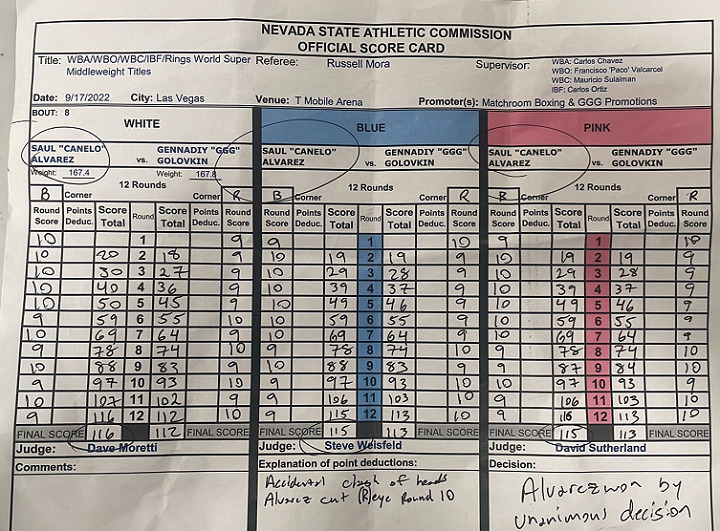 NEVADA STATE ATHLETIC COMMISSION
OFFICIAL SCORE CARD
Title: WBA/WBO/WBC/IBF/Rings World Super Middleweight Titles Referee: Russell Mora Supervisor: WBA: Carlos Chavez
WBO: Francisco 'Paco' Valcarcel
WBC: Mauricio Sulaiman
IBF: Carlos Ortiz
Date: 9/17/2022 City: Las Vegas Venue: T Mobile Arena Promoter(s): Matchroom Boxing & GGG Promotions
BOUT: 8
WHITE BLUE PINK
SAUL "CANELO" ALVAREZ vs. GENNADIY "GGG" GOLOVKIN SAUL "CANELO" ALVAREZ vs. GENNADIY "GGG" GOLOVKIN SAUL "CANELO" ALVAREZ vs. GENNADIY "GGG" GOLOVKIN
Weight: 167.4 Weight: 167.8
12 Rounds 12 Rounds 12 Rounds
B Corner Corner R B Corner Corner R B Corner Corner R
Round Score Points Deduc. Score Total Round Score Total Points Deduc. Round Score Round Score Points Deduc. Score Total Round Score Total Points Deduc. Round Score Round Score Points Deduc. Score Total Round Score Total Points Deduc. Round Score
10 1 9 9 1 10 9 1 10
10 20 2 18 9 10 19 2 19 9 10 19 2 19 9
10 30 3 27 9 10 29 3 28 9 10 29 3 28 9
10 40 4 36 9 10 39 4 37 9 10 39 4 37 9
10 50 5 45 9 10 49 5 46 9 10 49 5 46 9
9 59 6 55 10 10 59 6 55 9 10 59 6 55 9
10 69 7 64 9 10 69 7 64 9 10 69 7 64 9
9 78 8 74 10 9 78 8 74 10 9 78 8 74 10
10 88 9 83 9 10 88 9 83 9 9 87 9 84 10
9 97 10 93 10 9 97 10 93 10 10 97 10 93 9
10 107 11 102 9 9 106 11 103 10 9 106 11 103 10
9 116 12 112 10 9 115 12 113 10 9 115 12 113 10
FINAL SCORE 116 112 FINAL SCORE FINAL SCORE 115 113 FINAL SCORE FINAL SCORE 115 113 FINAL SCORE
Judge: Dave Moretti Judge: Steve Weisfeld Judge: David Sutherland
Comments: Explanation of point deductions: Decision:
Accidental clash of heads
Alvarez cut (R) eye Round 10
Alvarez won by
unanimous decision